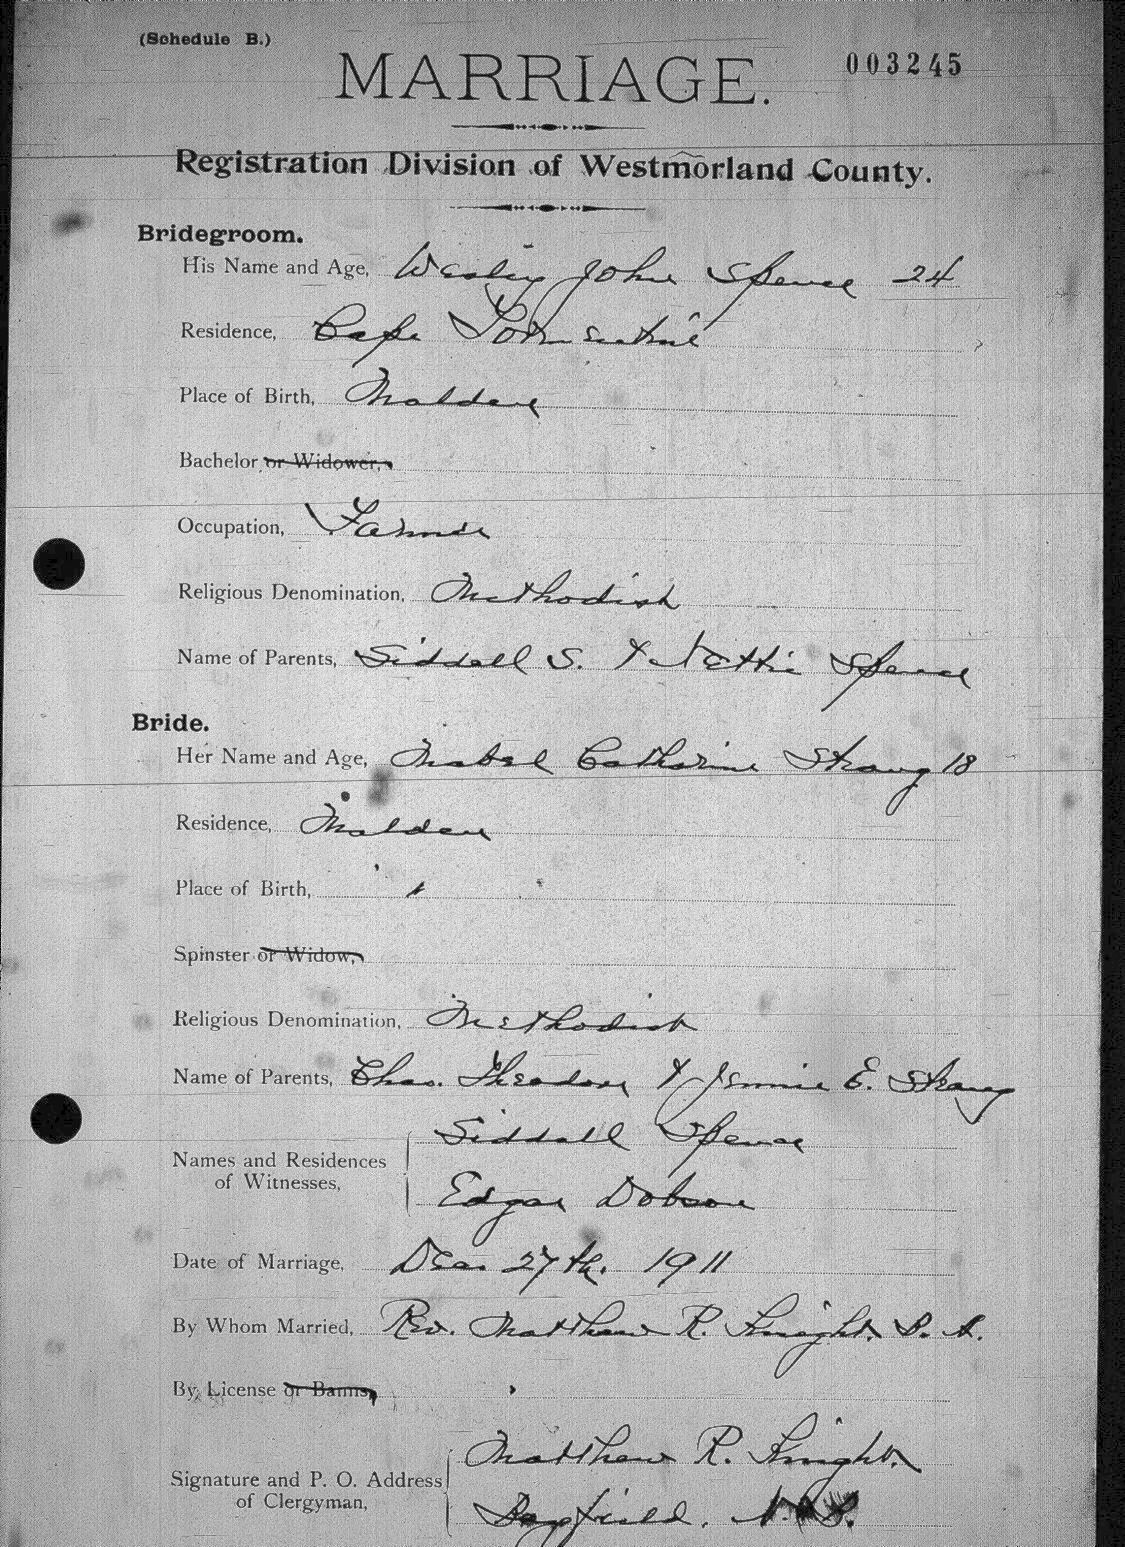 (Schedule B.)
MARRIAGE. 003245
Registration Division of Westmorland County.
Bridegroom.
His Name and Age, Wesley John Spence 24
Residence, Cape Tormentine
Place of Birth, Malden
Bachelor or Widower,
Occupation, Farmer
Religious Denomination, Methodist
Name of Parents, Siddall S. & Nettie Spence
Bride.
Her Name and Age, Mabel Catharine Strang 18
Residence, Malden
Place of Birth, "
Spinster or Widow,
Religious Denomination, Methodist
Name of Parents, Chas. Theodore & Jennie E. Strang
Siddall Spence
Names and Residences
of Witnesses,
Edgar Dobson
Date of Marriage, Dec. 27th. 1911
By Whom Married, Rev. Matthew R. Knight, B. A.
By License or Banns,
Matthew R. Knight,
Signature and P. O. Address
of Clergyman,
Bayfield, N. B.